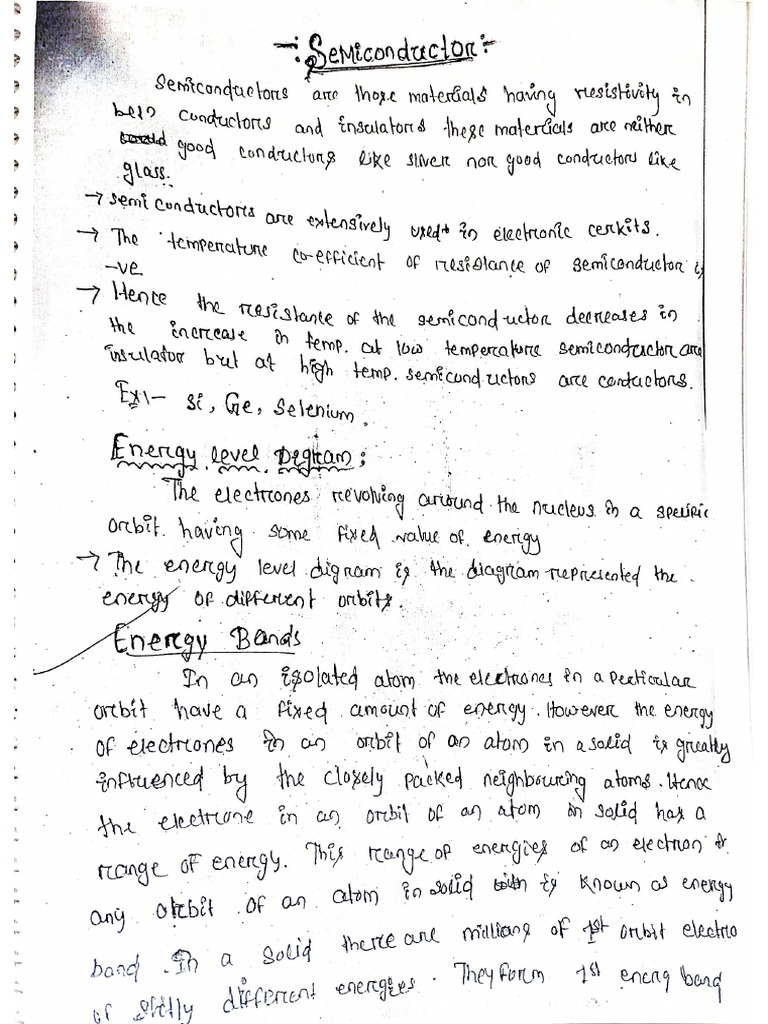 -: Semiconductor :-
Semiconductors are those materials having resistivity in
betn conductors and insulators these materials are neither
good conductors like silver nor good conductors like
glass.
→ semi conductors are extensively used in electronic cerkits.
→ The temperature co-efficient of resistance of semiconductor is
-ve
→ Hence the resistance of the semiconductor decreases in
the increase in temp. at low temperature semiconductor are
insulator but at high temp. semiconductors are conductors.
Ex:- Si, Ge, Selenium.
Energy level Degram:
The electrones revolving around the nucleus in a specific
orbit having some fixed value of energy
→ The energy level digram is the diagram represented the
energy of different orbits.
Energy Bands
In an isolated atom the electrones in a perticular
orbit have a fixed amount of energy. However the energy
of electrones in an orbit of an atom in a solid is greatly
influenced by the closely packed neighbouring atoms. Hence
the electrone in an orbit of an atom in solid has a
range of energy. This range of energies of an electron in
any orbit of an atom in solid is known as energy
band. In a solid there are millions of 1st orbit electro
of slitly different energies. They form 1st energ band